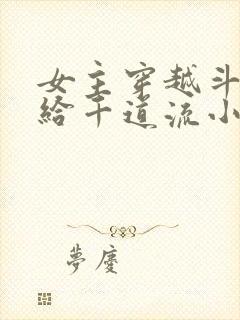 女主穿越斗
给千道流小
夢慶